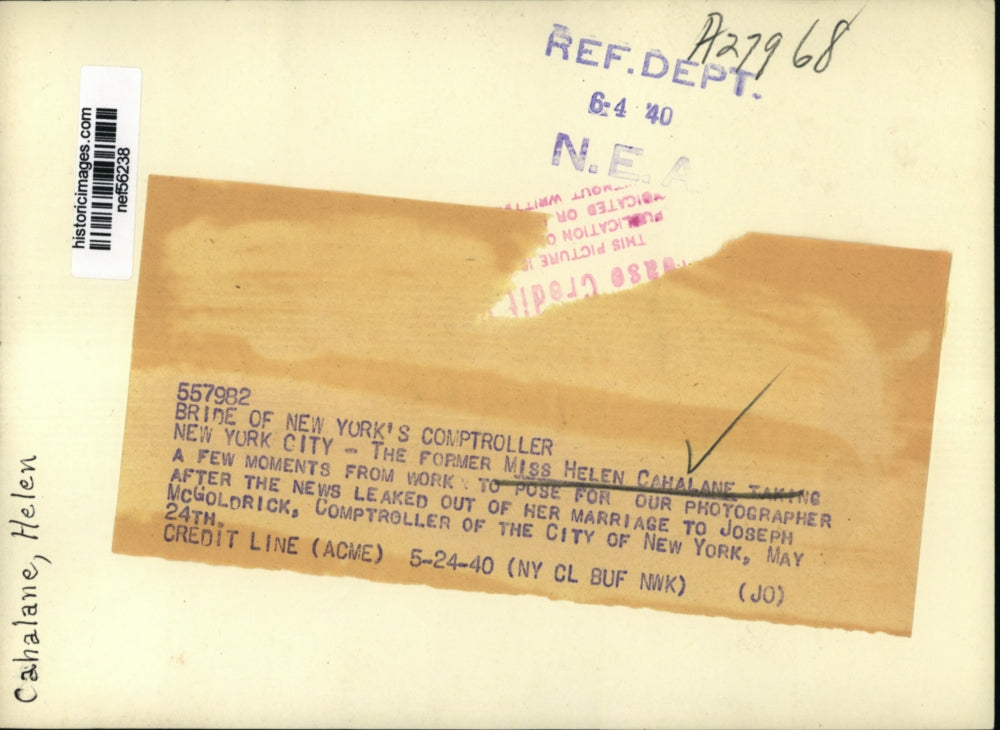 A27968
REF. DEPT.
6-4 '40
N. E. A
historicimages.com
nef56238
WRITT
DICATED OR
PUBLICATION O
THIS PICTURE I
Credit
557982
BRIDE OF NEW YORK'S COMPTROLLER
NEW YORK CITY - THE FORMER MISS HELEN CAHALANE TAKING
A FEW MOMENTS FROM WORK TO POSE FOR OUR PHOTOGRAPHER
AFTER THE NEWS LEAKED OUT OF HER MARRIAGE TO JOSEPH
MCGOLDRICK, COMPTROLLER OF THE CITY OF NEW YORK, MAY
24TH.
CREDIT LINE (ACME) 5-24-40 (NY CL BUF NWK) (JO)
Cahalane, Helen